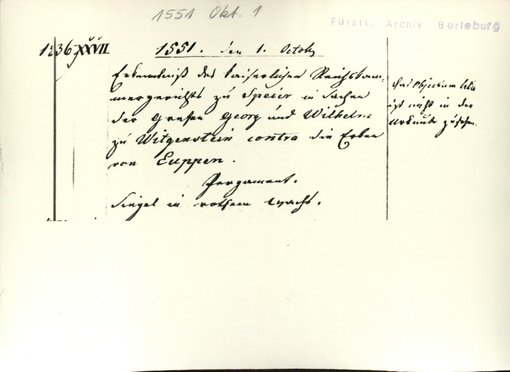 1551 Okt. 1
Fürstl. Archiv Berleburg
1236 XXVII.
1551. den 1. Octob
Erkenntniß des kaiserlichen Reichskam-
mergerichts zu Speier in Sachen
der Grafen Georg und Wilhelm
zu Witgenstein contra die Erben
von Euppen.
Pergament.
Siegel in rothem Wachs.
ist nicht in der
Urkunde